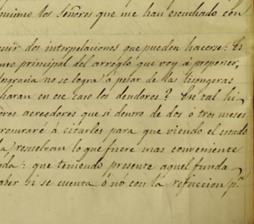 mismo los Señores que me han escuchado con
dos interpelaciones que pueden hacerse: Es
principal del arreglo que voy á proponer,
no se logra á pesar de las lisongeras
harán en ese caso los deudores? En tal
acreedores que si dentro de dos ó tres meses
procuraré á citarlos para que viendo el estado
resuelvan lo que fuere mas conveniente
que teniendo presente aquel funda
si se cuenta ó no con la refaccion pª